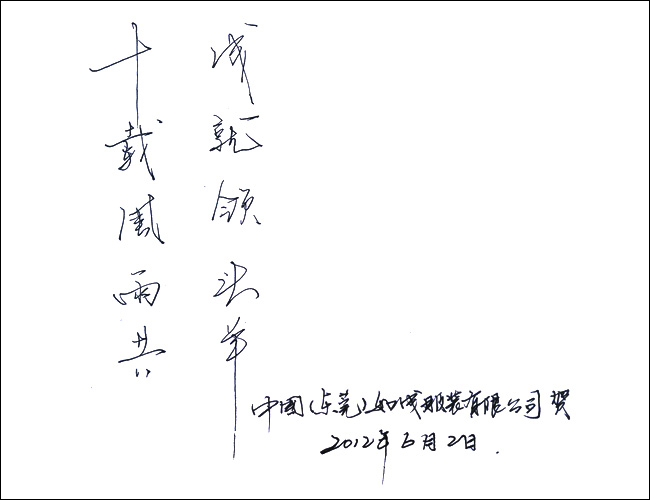 十载风雨共
成就领头羊
中国(东莞)如成服装有限公司 贺
2012年6月2日.